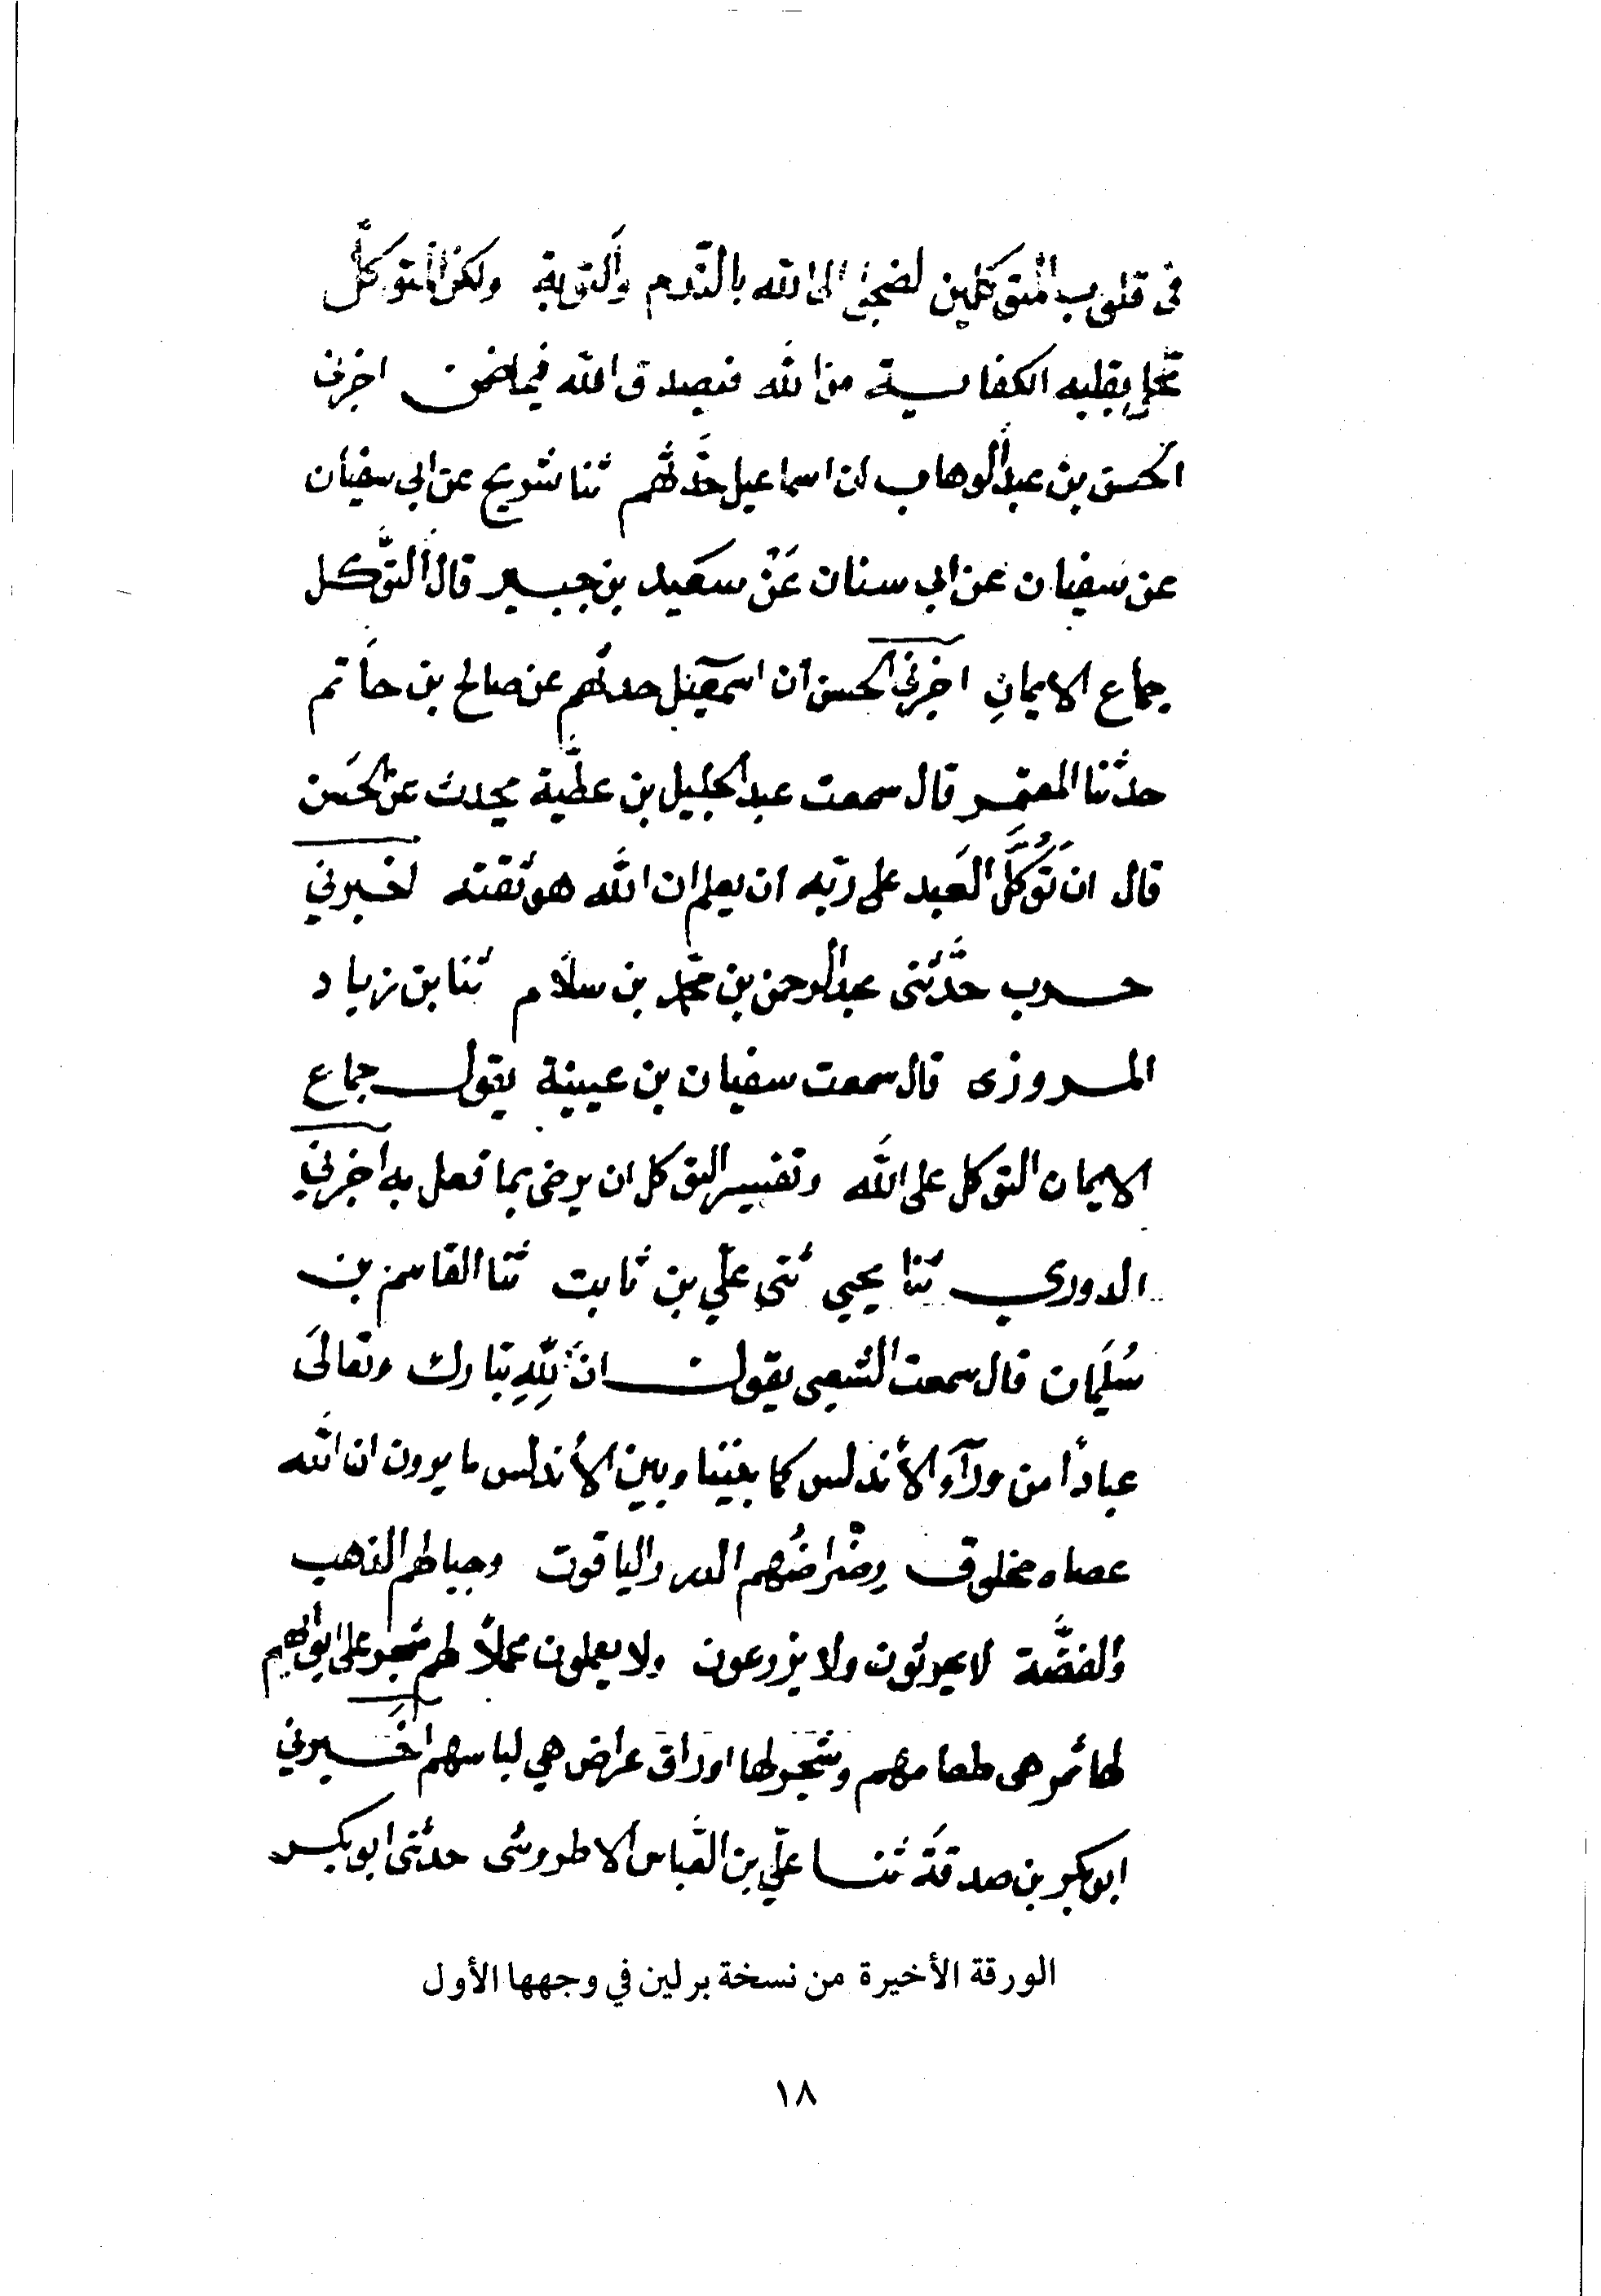 في قلوب المتوكلين لضجوا الى الله بالندم والتوبة ولكن المتوكل
يحل بقلبه الكفاية من الله فيصدق الله فيما ضمن اخبرني
الحسن بن عبد الوهاب ان اسماعيل حدثهم ثنا شريح عن ابي سفيان
عن سفيان عن ابي سنان عَنْ سعيد بن جبير قال التوَّكل
جماع الايمانِ اخبرني الحسن أن اسمعيل حدثهم عن صالح بن حاتم
حدثنا المعتمر قال سمعت عبد الجليل بن عطية يحدث عن الحَسَن
قال ان تَوَكُّلَ العَبد على ربّه ان يعلم ان الله هو ثقته اخبرني
حرب حدَّثني عبد الرحمن بن محمّد بن سلام ثنا بن زياد
المروزى قال سمعت سفيان بن عيينة يقول جماع
الايمان التوكل على الله وتفسير التوكل ان يرضى بما فعل به اخبرني
الدوري ثنا يحيي ثنى عليّ بن ثابت ثنا القاسم بن
سُلَيمان قال سمعت الشعبى يقول انّ للهِ تبارك وتعالَى
عباداً من ورآء الأندلس كما بيننا وبين الأندلس ما يرون ان الله
عصاه مخلوق رضْراضُهم الدر والياقوت وجبالهم الذهب
والفضَّة لا يحرثون ولا يزرعون ولا يعملون عملاً لهم شجر على ابوابهم
لها ثمر هى طعامهم وشجر لها اوراق عراض هي لباسهم اخبرني
ابو بكر بن صدقَة ثنا عليّ بن العَباس الاطروشى حدثنى ابو بكر
الورقة الأخيرة من نسخة برلين في وجهها الأول
١٨